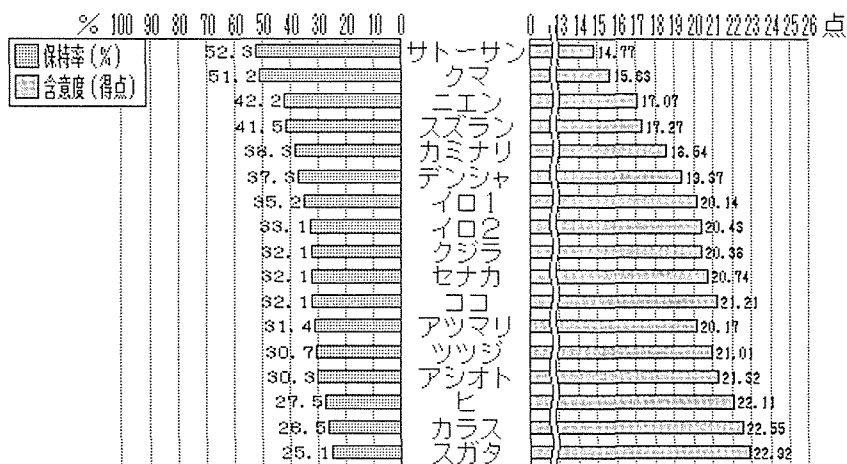 % 100 90 80 70 60 50 40 30 20 10 0 0 13 14 15 16 17 18 19 20 21 22 23 24 25 26 点
保持率(%)
含意度(得点)
52.3 サトーサン 14.77
51.2 クマ 15.63
42.2 ニエン 17.07
41.5 スズラン 17.27
38.3 カミナリ 18.54
37.3 デンシャ
35.2 イロ1 20.14
33.1 イロ2 20.43
32.1 クジラ 20.36
32.1 セナカ 20.74
32.1 ココ 21.21
31.4 アツマリ 20.17
30.7 ツツジ 21.01
30.3 アシオト 21.32
27.5 ヒ 22.11
カラス 22.55
25.1 スガタ 22.92